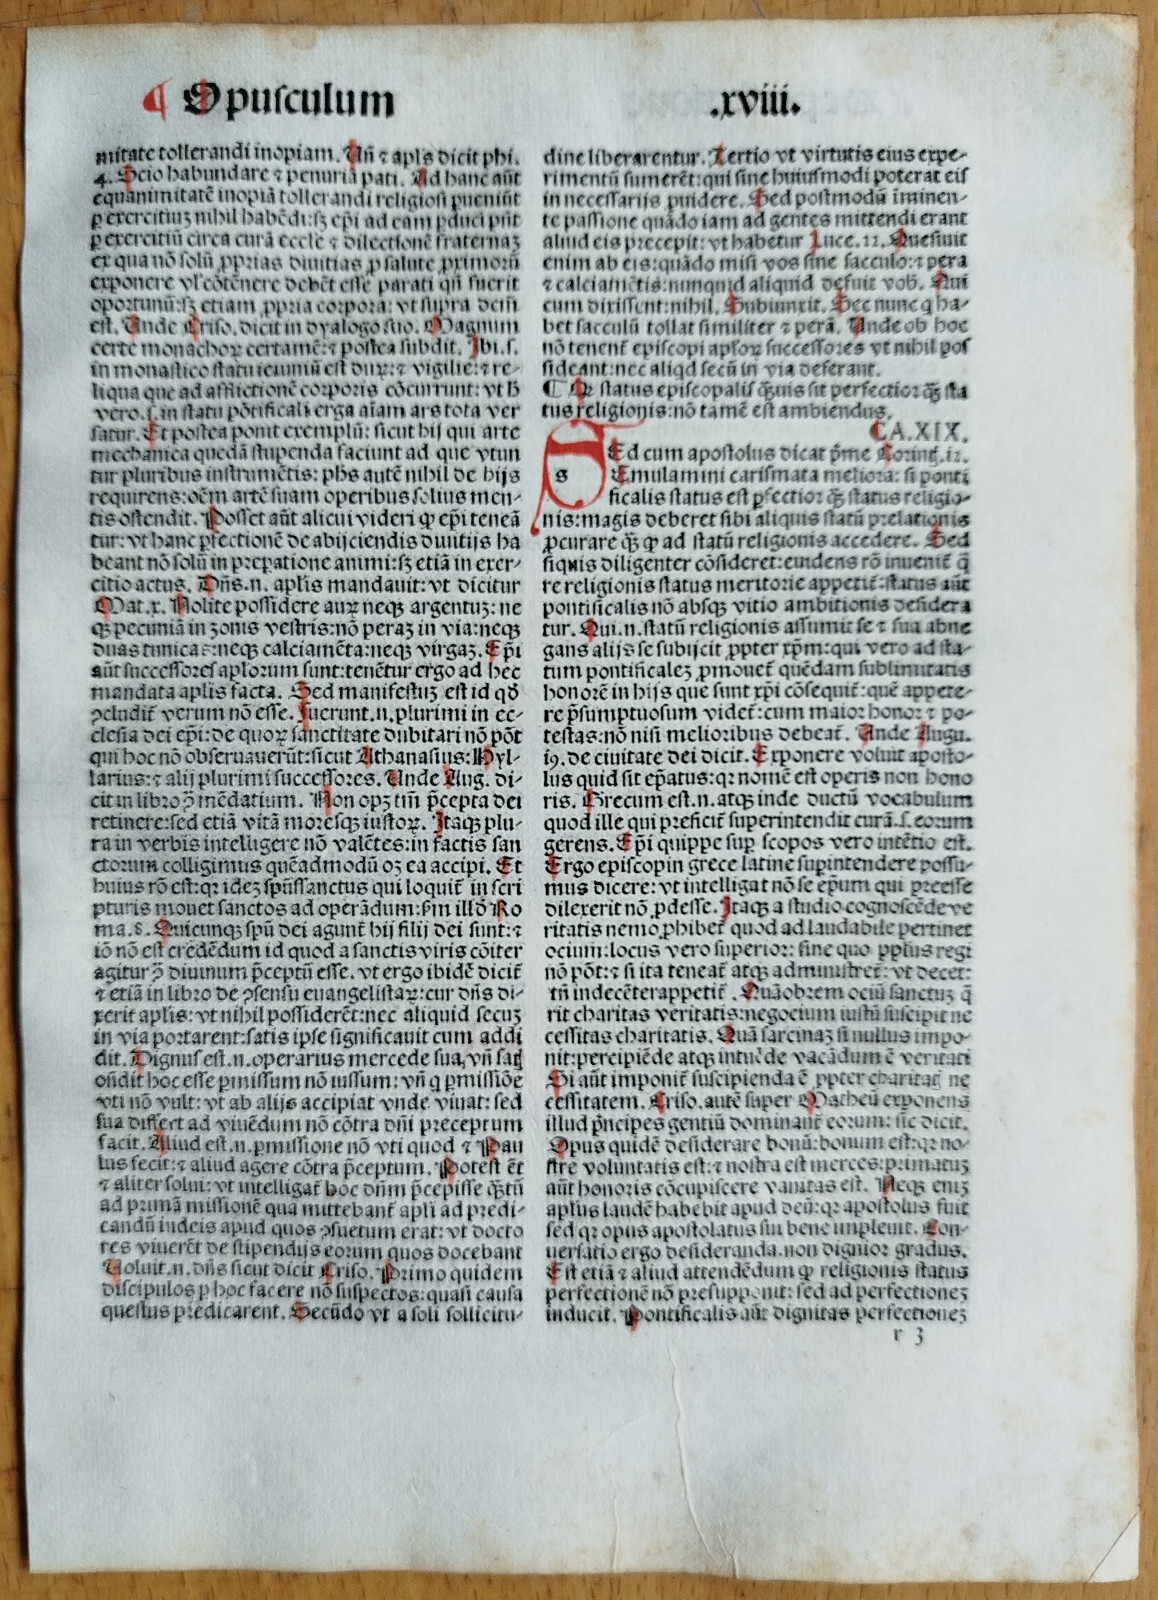 ¶ Opusculum .xviii.
mitate tollerandi inopiam. Uñ ⁊ apl's dicit phi.
4. Scio habundare ⁊ penuriā pati. Ad hanc aūt
equanimitatē inopiā tollerandi religiosi pueniūt
ꝑ exercitiuꝫ nihil habēdi: sꝫ ep̄i ad eam ꝑduci pñt
ꝑ exercitiū circa curā eccl'e ⁊ dilectionē fraternaꝫ
ex qua nō solū ꝓprias diuitias ꝓ salute ꝓximorū
exponere vl' cōtēnere debēt esse parati qñ fuerit
oportunū: sꝫ etiam ꝓpria corpora: vt supra dcm̄
est. Unde Criso. dicit in dyalogo suo. Magnum
certe monachoꝝ certamē: ⁊ postea subdit. Ibi .s.
in monastico statu ieiuniū est duꝝ: ⁊ vigilie: ⁊ re-
liqua que ad afflictionē corporis cōcurrunt: vt h̄
vero .s. in statu pōtificali erga aīam ars tota ver
satur. Et postea ponit exemplū: sicut hij qui arte
mechanica quedā stupenda faciunt ad que vtun
tur pluribus instrumētis: ph̄s autē nihil de hijs
requirens: oēm artē suam operibus solius men-
tis ostendit. Posset aūt alicui videri ꝙ ep̄i teneā
tur: vt hanc ꝑfectionē de abijciendis diuitijs ha
beant nō solū in preꝑatione animi: sꝫ etiā in exer-
citio actus. Dñs .n. apl'is mandauit: vt dicitur
Mat. x. Nolite possidere auꝝ neqꝫ argentuꝫ: ne
qꝫ pecuniā in zonis vestris: nō peraꝫ in via: neqꝫ
duas tunicas: neqꝫ calciamēta: neqꝫ virgaꝫ. Ep̄i
aūt successores apl'orum sunt: tenētur ergo ad hec
mandata apl'is facta. Sed manifestuꝫ est id qd̄
ꝯcludit̄ verum nō esse. Fuerunt .n. plurimi in ec-
clesia dei ep̄i: de quoꝝ sanctitate dubitari nō pōt
qui hoc nō obseruauerūt: sicut Athanasius: Hyl-
larius: ⁊ alij plurimi successores. Unde Aug. di-
cit in libro ꝯ̄ mēdatium. Non opꝫ tm̄ p̄cepta dei
retinere: sed etiā vitā moresqꝫ iustoꝝ. Itaqꝫ plu-
ra in verbis intelligere nō valētes: in factis san
ctorum colligimus quēadmodū oꝫ ea accipi. Et
huius rō est: qꝛ ideꝫ spūssanctus qui loquit̄ in scri
pturis mouet sanctos ad operādum: ẜm illd̄ Ro
ma. 8. Quicunqꝫ spū dei agunt̄ hij filij dei sunt: ⁊
iō nō est credēdum id quod a sanctis viris cōiter
agitur ꝯ̄ diuinum p̄ceptū esse. vt ergo ibidē dicit̄
⁊ etiā in libro de ꝯsensu euangelistaꝝ: cur dñs di-
xerit apl'is: vt nihil possiderēt: nec aliquid secuꝫ
in via portarent: satis ipse significauit cum addi
dit. Dignus est .n. operarius mercede sua, vñ satꝫ
oñdit hoc esse ꝑmissum nō iussum: vñ q ꝑmissiōe
vti nō vult: vt ab alijs accipiat vnde viuat: sed
sua differt ad viuēdum nō cōtra dñi preceptum
facit. Aliud est .n. ꝑmissione nō vti quod ⁊ Pau
lus fecit: ⁊ aliud agere cōtra p̄ceptum. Potest ēt
⁊ aliter solui: vt intelligat̄ hoc dñm p̄cepisse qꝫtū
ad primā missionē qua mittebant̄ apl'i ad predi-
candū iudeis apud quos ꝯsuetum erat: vt docto
res viuerēt de stipendijs eorum quos docebant
Uoluit .n. dñs sicut dicit Criso. Primo quidem
discipulos ꝑ hoc facere nō suspectos: quasi causa
questus predicarent. Secūdo vt a soli sollicitu-
dine liberarentur. Tertio vt virtutis eius expe-
rimentū sumerēt: qui sine huiusmodi poterat eis
in necessarijs ꝓuidere. Sed postmodū īminen-
te passione quādo iam ad gentes mittendi erant
aliud eis precepit: vt habetur Luce. 22. Quesiuit
enim ab eis: quādo misi vos sine sacculo: ⁊ pera
⁊ calciamētis: nunquid aliquid defuit vob̄. Qui
cum dixissent: nihil. Subiunxit. Sec nunc q ha-
bet sacculū tollat similiter ⁊ perā. Unde ob hoc
nō tenent̄ episcopi apl'oꝝ successores vt nihil pos
sideant: nec aliqd secū in via deferant.
¶ Qꝫ status episcopalis qꝫuis sit perfectior qꝫ sta
tus religionis: nō tamē est ambiendus.
CA.XIX.
s Ed cum apostolus dicat p̄me Corint. 12.
Emulamini carismata meliora: si ponti
ficalis status est ꝑfectior qꝫ status religio-
nis: magis deberet sibi aliquis statū prelationis
ꝓcurare qꝫ ꝙ ad statū religionis accedere. Sed
siquis diligenter cōsideret: euidens rō inuenit̄ q̄
re religionis status meritorie appetit̄: status aūt
pontificalis nō absqꝫ vitio ambitionis desidera
tur. Qui .n. statū religionis assumit se ⁊ sua abne
gans alijs se subijcit ꝓpter xp̄m: qui vero ad sta-
tum pontificaleꝫ ꝓmouet̄ quēdam sublimitatis
honorē in hijs que sunt xp̄i cōsequit̄: quē appete-
re p̄sumptuosum videt̄: cum maior honor ⁊ po-
testas: nō nisi melioribus debeat̄. Unde Augu.
19. de ciuitate dei dicit. Exponere voluit aposto-
lus quid sit ep̄atus: qꝛ nomē est operis non hono
ris. Grecum est .n. atqꝫ inde ductū vocabulum
quod ille qui preficit̄ superintendit curā .s. eorum
gerens. Epi quippe suꝑ scopos vero intētio est.
Ergo episcopin grece latine suꝑintendere possu-
mus dicere: vt intelligat nō se ep̄um qui preesse
dilexerit nō ꝓdesse. Itaqꝫ a studio cognoscēde ve
ritatis nemo ꝓhibet̄ quod ad laudabile pertinet
ocium: locus vero superior: sine quo ppl'us regi
nō pōt: ⁊ si ita teneat̄ atqꝫ administret̄: vt decet:
tñ indecēter appetit̄. Quāobrem ociū sanctuꝫ q̄
rit charitas veritatis: negocium iustū suscipit ne
cessitas charitatis. Quā sarcinaꝫ si nullus impo-
nit: percipiēde atqꝫ intuēde vacādum ē veritati
Si aūt imponit̄ suscipienda ē ꝓpter charitat̄ ne
cessitatem. Criso. autē super Matheū exponens
illud p̄ncipes gentiū dominant̄ eorum: sic dicit.
Opus quidē desiderare bonū: bonum est: qꝛ no-
stre voluntatis est: ⁊ nostra est merces: primatuꝫ
aūt honoris cōcupiscere vanitas est. Neqꝫ eniꝫ
apl'us laudē habebit apud deū: qꝛ apl'us fuit
sed qꝛ opus apostolatus sui bene impleuit. Con-
uersatio ergo desideranda. non dignior gradus.
Est etiā ⁊ aliud attendēdum ꝙ religionis status
perfectionē nō presupponit: sed ad perfectioneꝫ
inducit. Pontificalis aūt dignitas perfectioneꝫ
r 3